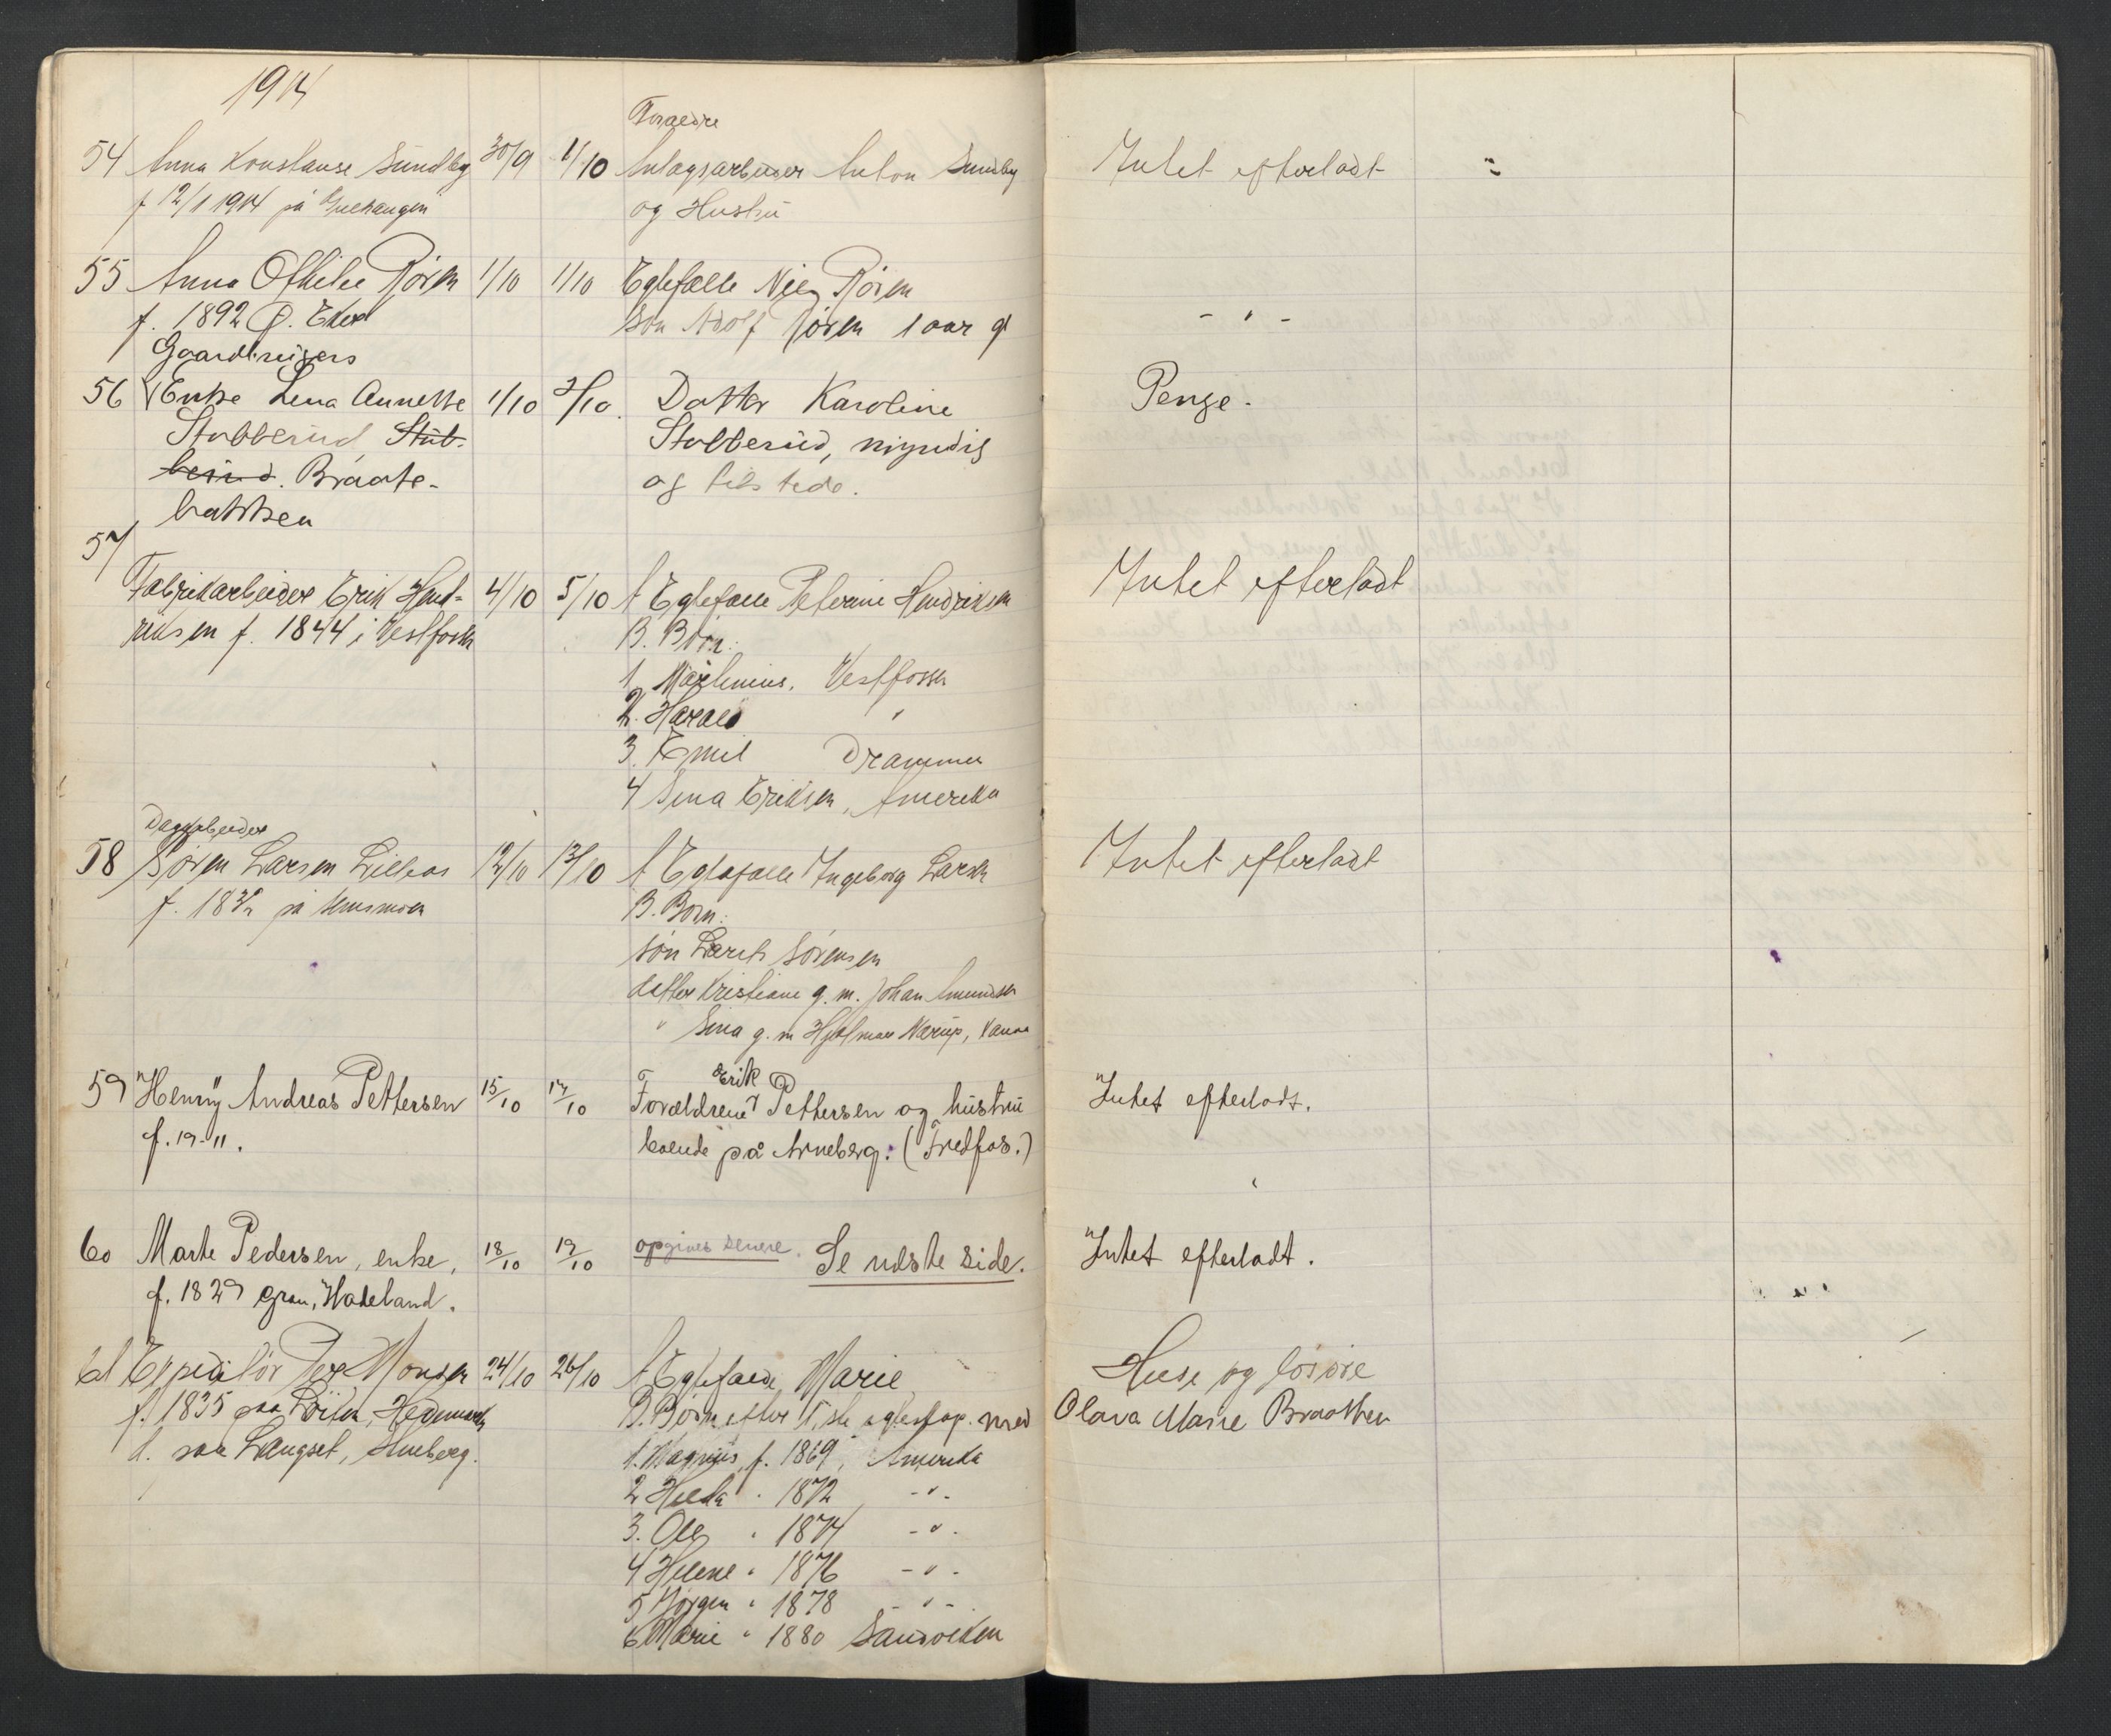 1914
Foraedre
54 Anna Konstanse Sundby 30/9 1/10 Anlagsarbeider Anton Sundby Intet efterladt
f 12/1 1914 på
og Hustru
55 Anna Othilie Rören 1/10 1/10 Egtefælle Rören
f. 1892 Ø. Eker
Søn Adolf Jören 1 aar gl - " -
Gaardbrugers
56 Enke Lena Annette 1/10 2/10. Datter Karoline Penge.
Stubberud, Stub-
Stubberud, myndig
berud. Braate-
og tilstede.
bakken
57
Fabrikarbeider Erik Hend- 4/10 5/10 A Egtefælle Peterine Hendriksen Intet efterladt
riksen f. 1844 i Vestfossen
B. Börn:
1. Martinius. Vestfossen
2. Harald "
3. Emil Drammen
4 Sina Eriksen, Amerika
Dagarbeider
58 Sören Larsen Lillaas 12/10 13/10 A Egtefælle Ingeborg Larsen Intet efterladt
f. på
B. Born:
sön Laurits Sörensen
datter Kristiane g. m. Johan Amundsen
" Sina g. m Hjalmar
59 Henry Andreas Pettersen 15/10 17/10 Forældrene Erik Pettersen og hustru Intet efterladt.
f. 19-11.
boende på Arneberg. (Fredfos.)
60 Marte Pedersen, enke, 18/10 19/10 opgives senere. Se næste side. Intet efterladt.
f. 1829 Gran, Hadeland.
61 Expeditör Per Monsen 24/10 26/10 A Egtefælle, Marie Huse og losöre
f. 1835 paa Löiten, Hedemarken
B. Börn efter 1ste egteskap. med Olava Marie Braathen
d. paa Langset,
1. Magnus, f. 1869, Amerika
2 Hilda " 1872 - " -
3. Ole " 1874 - " -
4 Helene " 1876 - " -
5 Jörgen " 1878 - " -
6 Marie " 1880 Sandviken